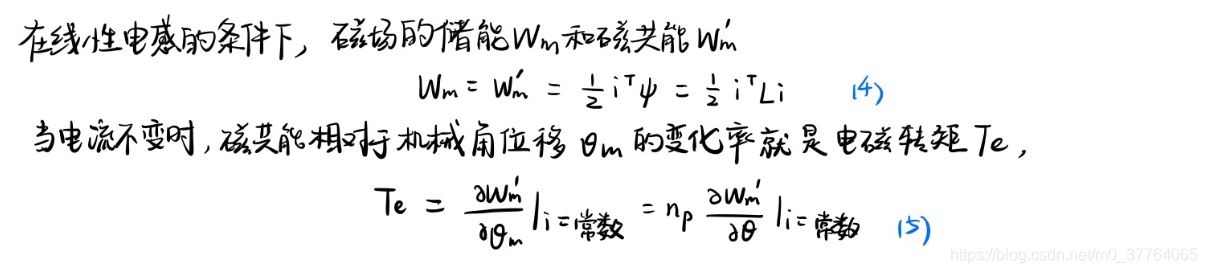 在线性电感的条件下，磁场的储能Wm和磁共能W'm
Wm = W'm = 1/2 iᵀψ = 1/2 iᵀLi (4)
当电流不变时，磁共能相对于机械角位移θm的变化率就是电磁转矩Te，
Te = ∂W'm/∂θm |i=常数 = np ∂W'm/∂θ |i=常数 (5)
https://blog.csdn.net/m0_37764065